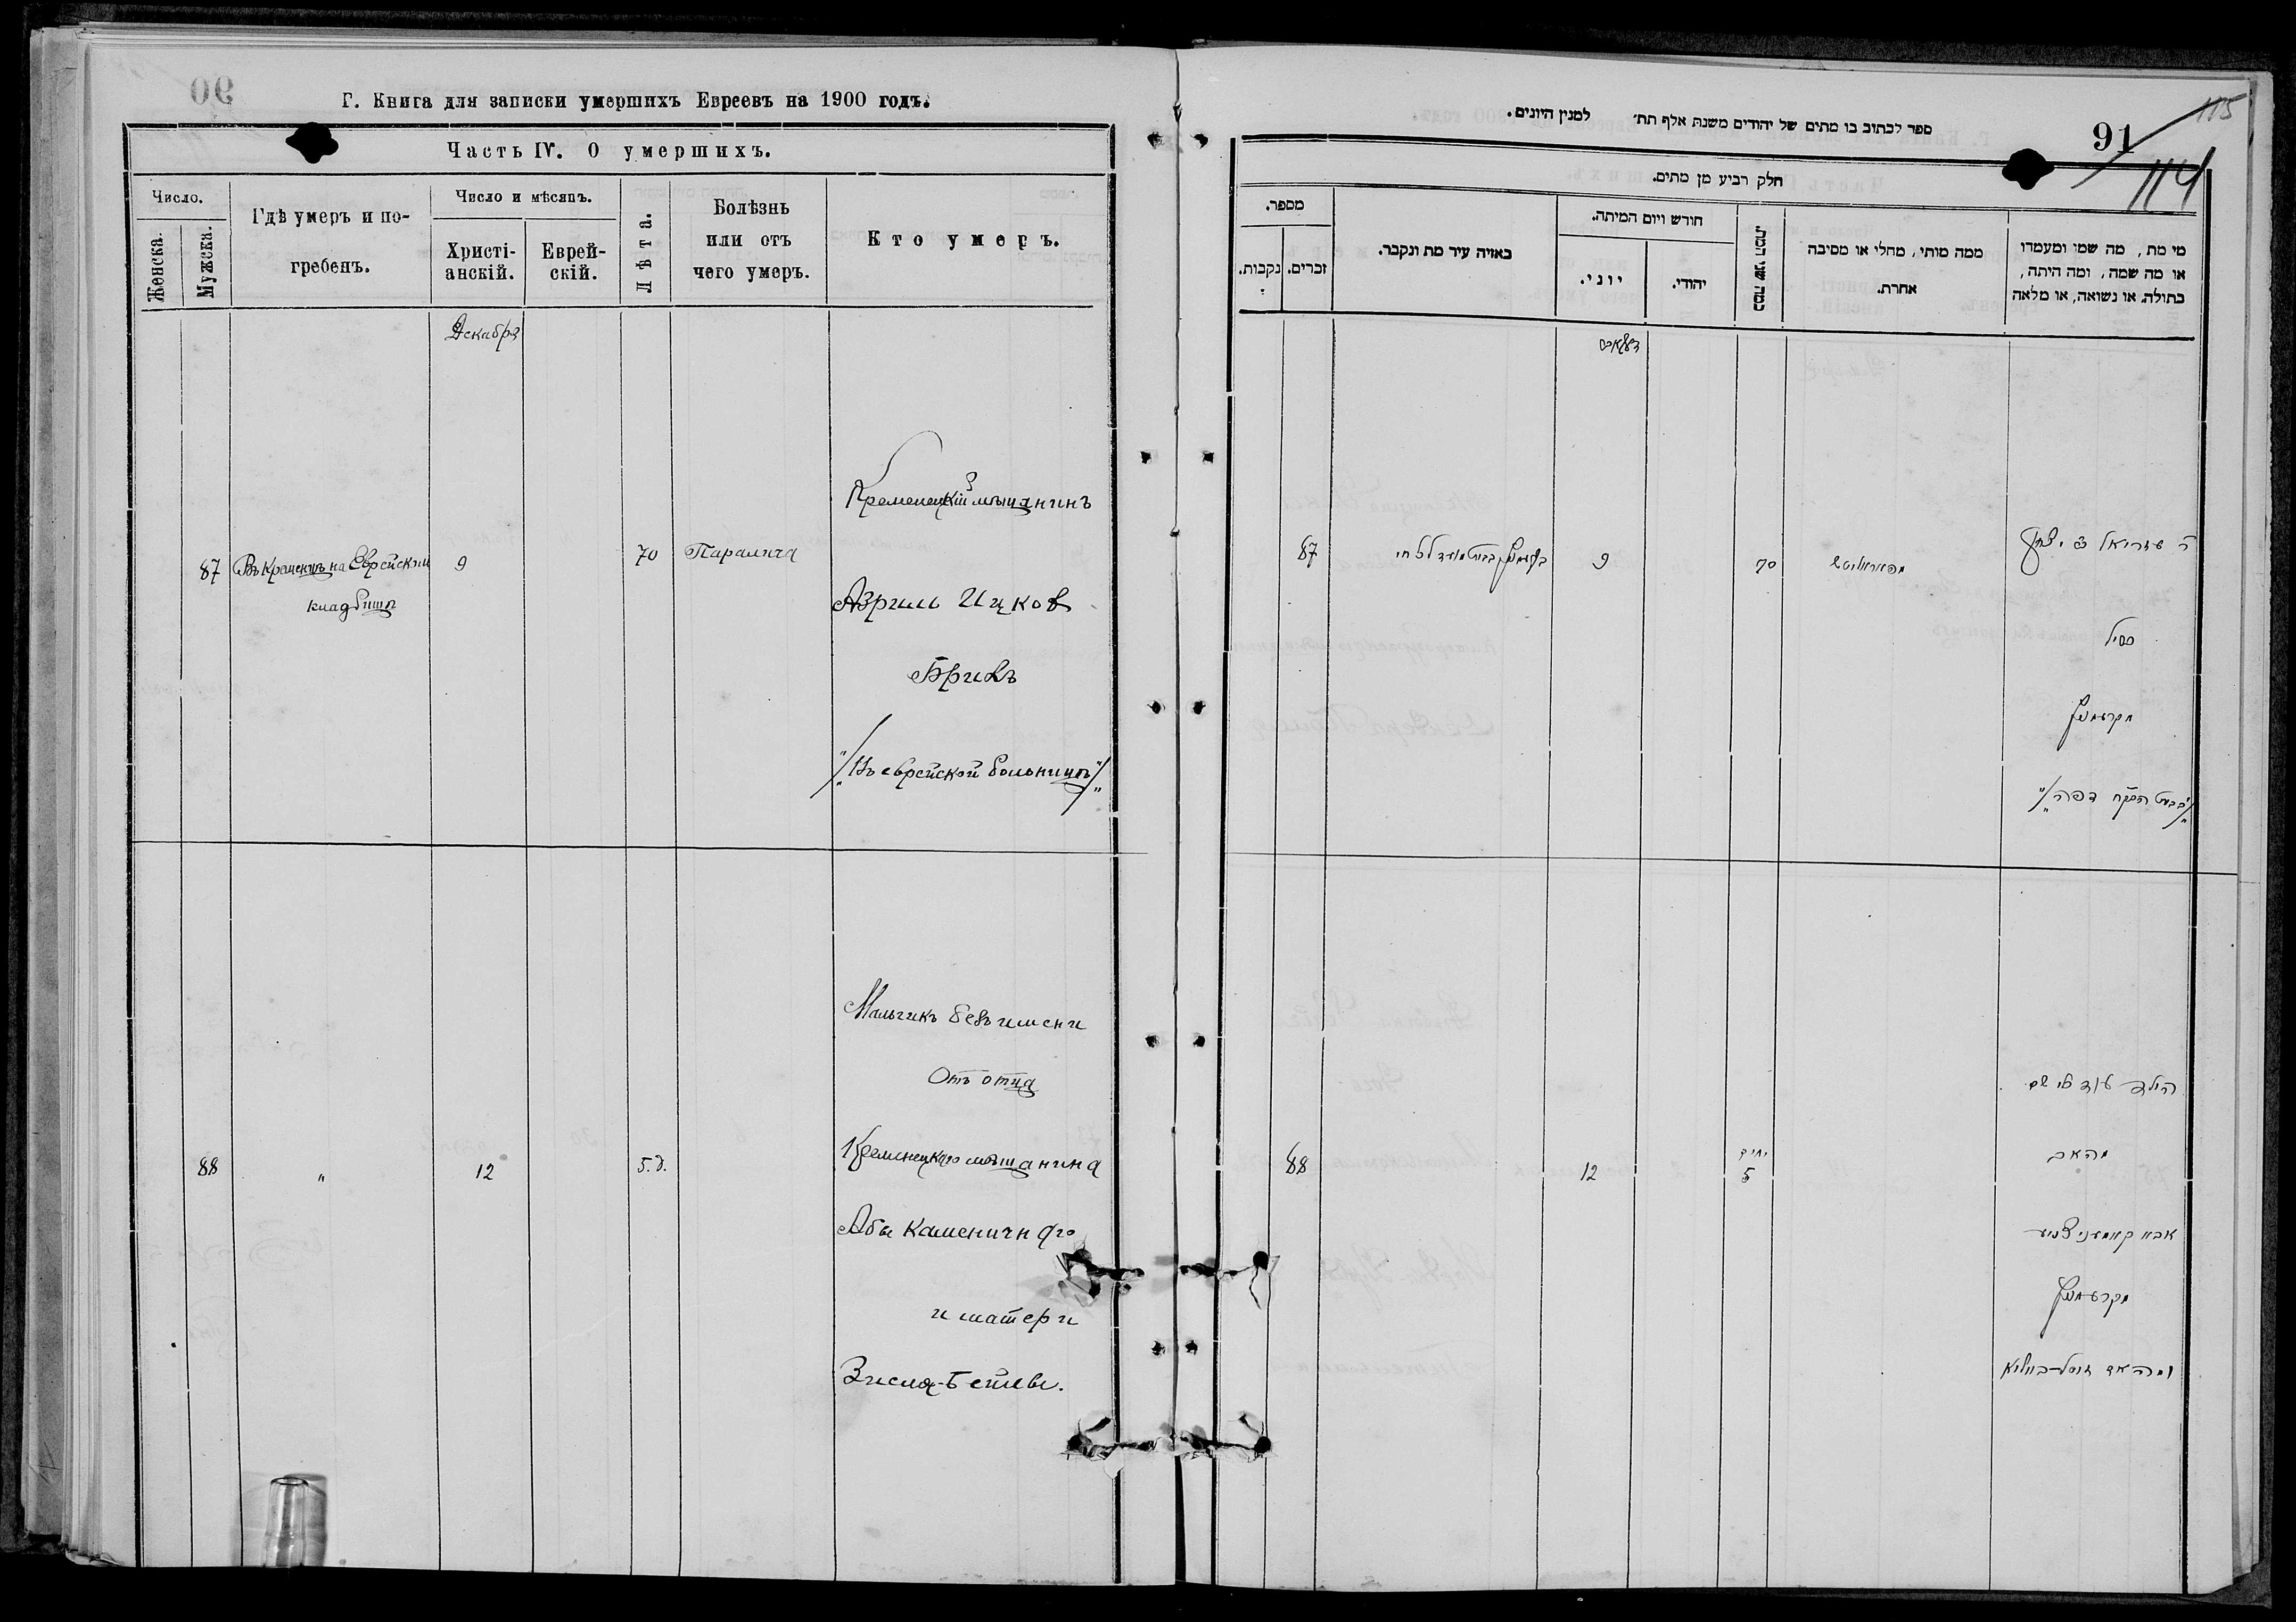 Г. Книга для записки умершихъ Евреевъ на 1900 годъ.
Часть IV. О умершихъ.
Число.
Женска.
Мужска.
Гдѣ умеръ и по-
гребенъ.
Число и мѣсяцъ.
Христі-
анскій.
Еврей-
скій.
Лѣта.
Болѣзнь
или отъ
чего умеръ.
Кто умеръ.
Декабря
87
Въ Кременцѣ на Еврейском
кладбищѣ
9
70
Паралича
Кременецкій мѣщанинъ
Азриль Ицков
Брикъ
"/Въ еврейской больницѣ/"
88
"
12
5.д.
Мальчикъ безъ имени
Отъ отца
Кременецкаго мѣщанина
Абы Каменичнаго
и матери
Зисля-Бейлы.
ספר לכתוב בו מתים של יהודים משנת אלף תת׳ למנין היונים.
91
115
114
חלק רביע מן מתים.
מספר.
נקבות.
זכרים.
באזיה עיר מת ונקבר.
חורש ויום המיתה.
יוני.
יהודי.
כמה שני המת.
ממה מותי, מחלי או מסיבה
אחרת.
מי מת, מה שמו ומעמדו
או מה שמה, ומה היתה,
בתולה, או נשואה, או מלאה
87
9
70
ר׳ עזריאל ב׳ יצחק
מקרעמעניץ
88
12
5
הילד עוד בלי שם
מהאב
אבא קאמעניצנע
מקרעמעניץ